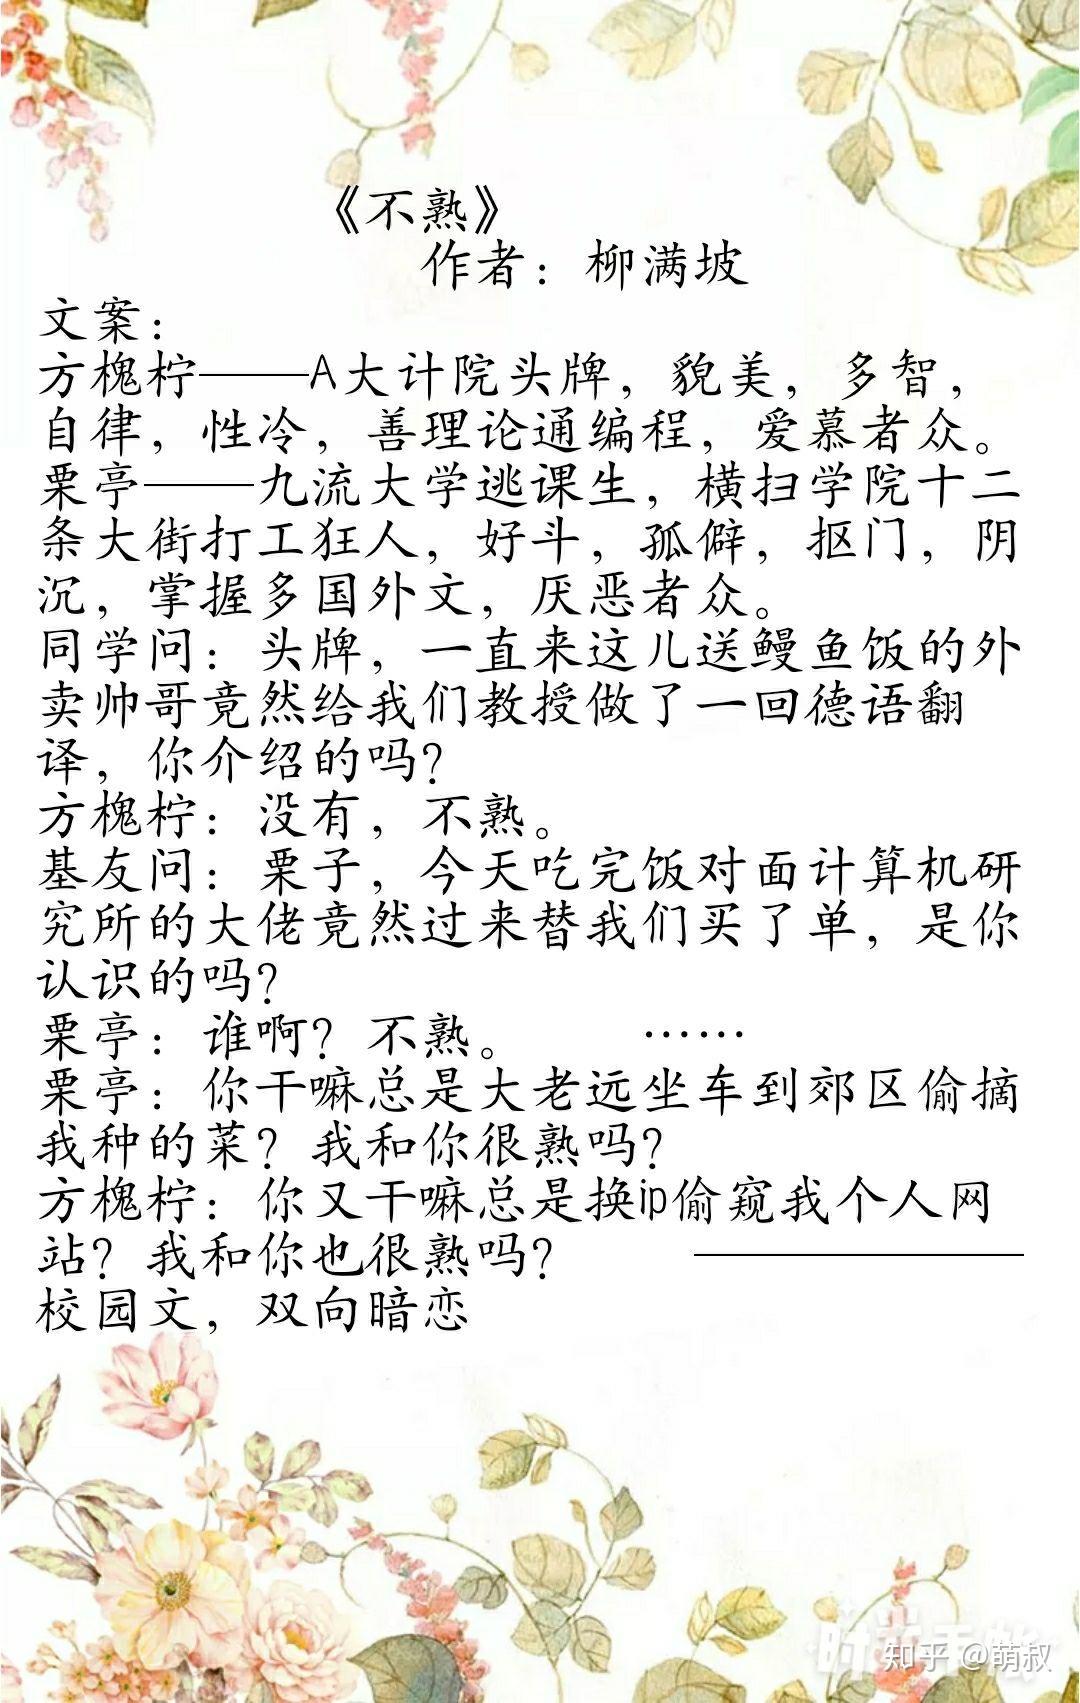 《不熟》
作者：柳满坡
文案：
方槐柠——A大计院头牌，貌美，多智，
自律，性冷，善理论通编程，爱慕者众。
栗亭——九流大学逃课生，横扫学院十二
条大街打工狂人，好斗，孤僻，抠门，阴
沉，掌握多国外文，厌恶者众。
同学问：头牌，一直来这儿送鳗鱼饭的外
卖帅哥竟然给我们教授做了一回德语翻
译，你介绍的吗？
方槐柠：没有，不熟。
基友问：栗子，今天吃完饭对面计算机研
究所的大佬竟然过来替我们买了单，是你
认识的吗？
栗亭：谁啊？不熟。 ……
栗亭：你干嘛总是大老远坐车到郊区偷摘
我种的菜？我和你很熟吗？
方槐柠：你又干嘛总是换ip偷窥我个人网
站？我和你也很熟吗？ ——————
校园文，双向暗恋
时光手帐
知乎 @萌叔